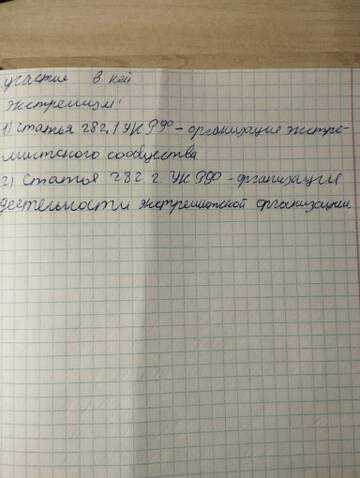 участие в ней
экстремизм:
1) статья 282.1 УК РФ - организация экстре-
мистского сообщества
2) Статья 282.2. УК РФ - организация
деятельности экстремистской организации